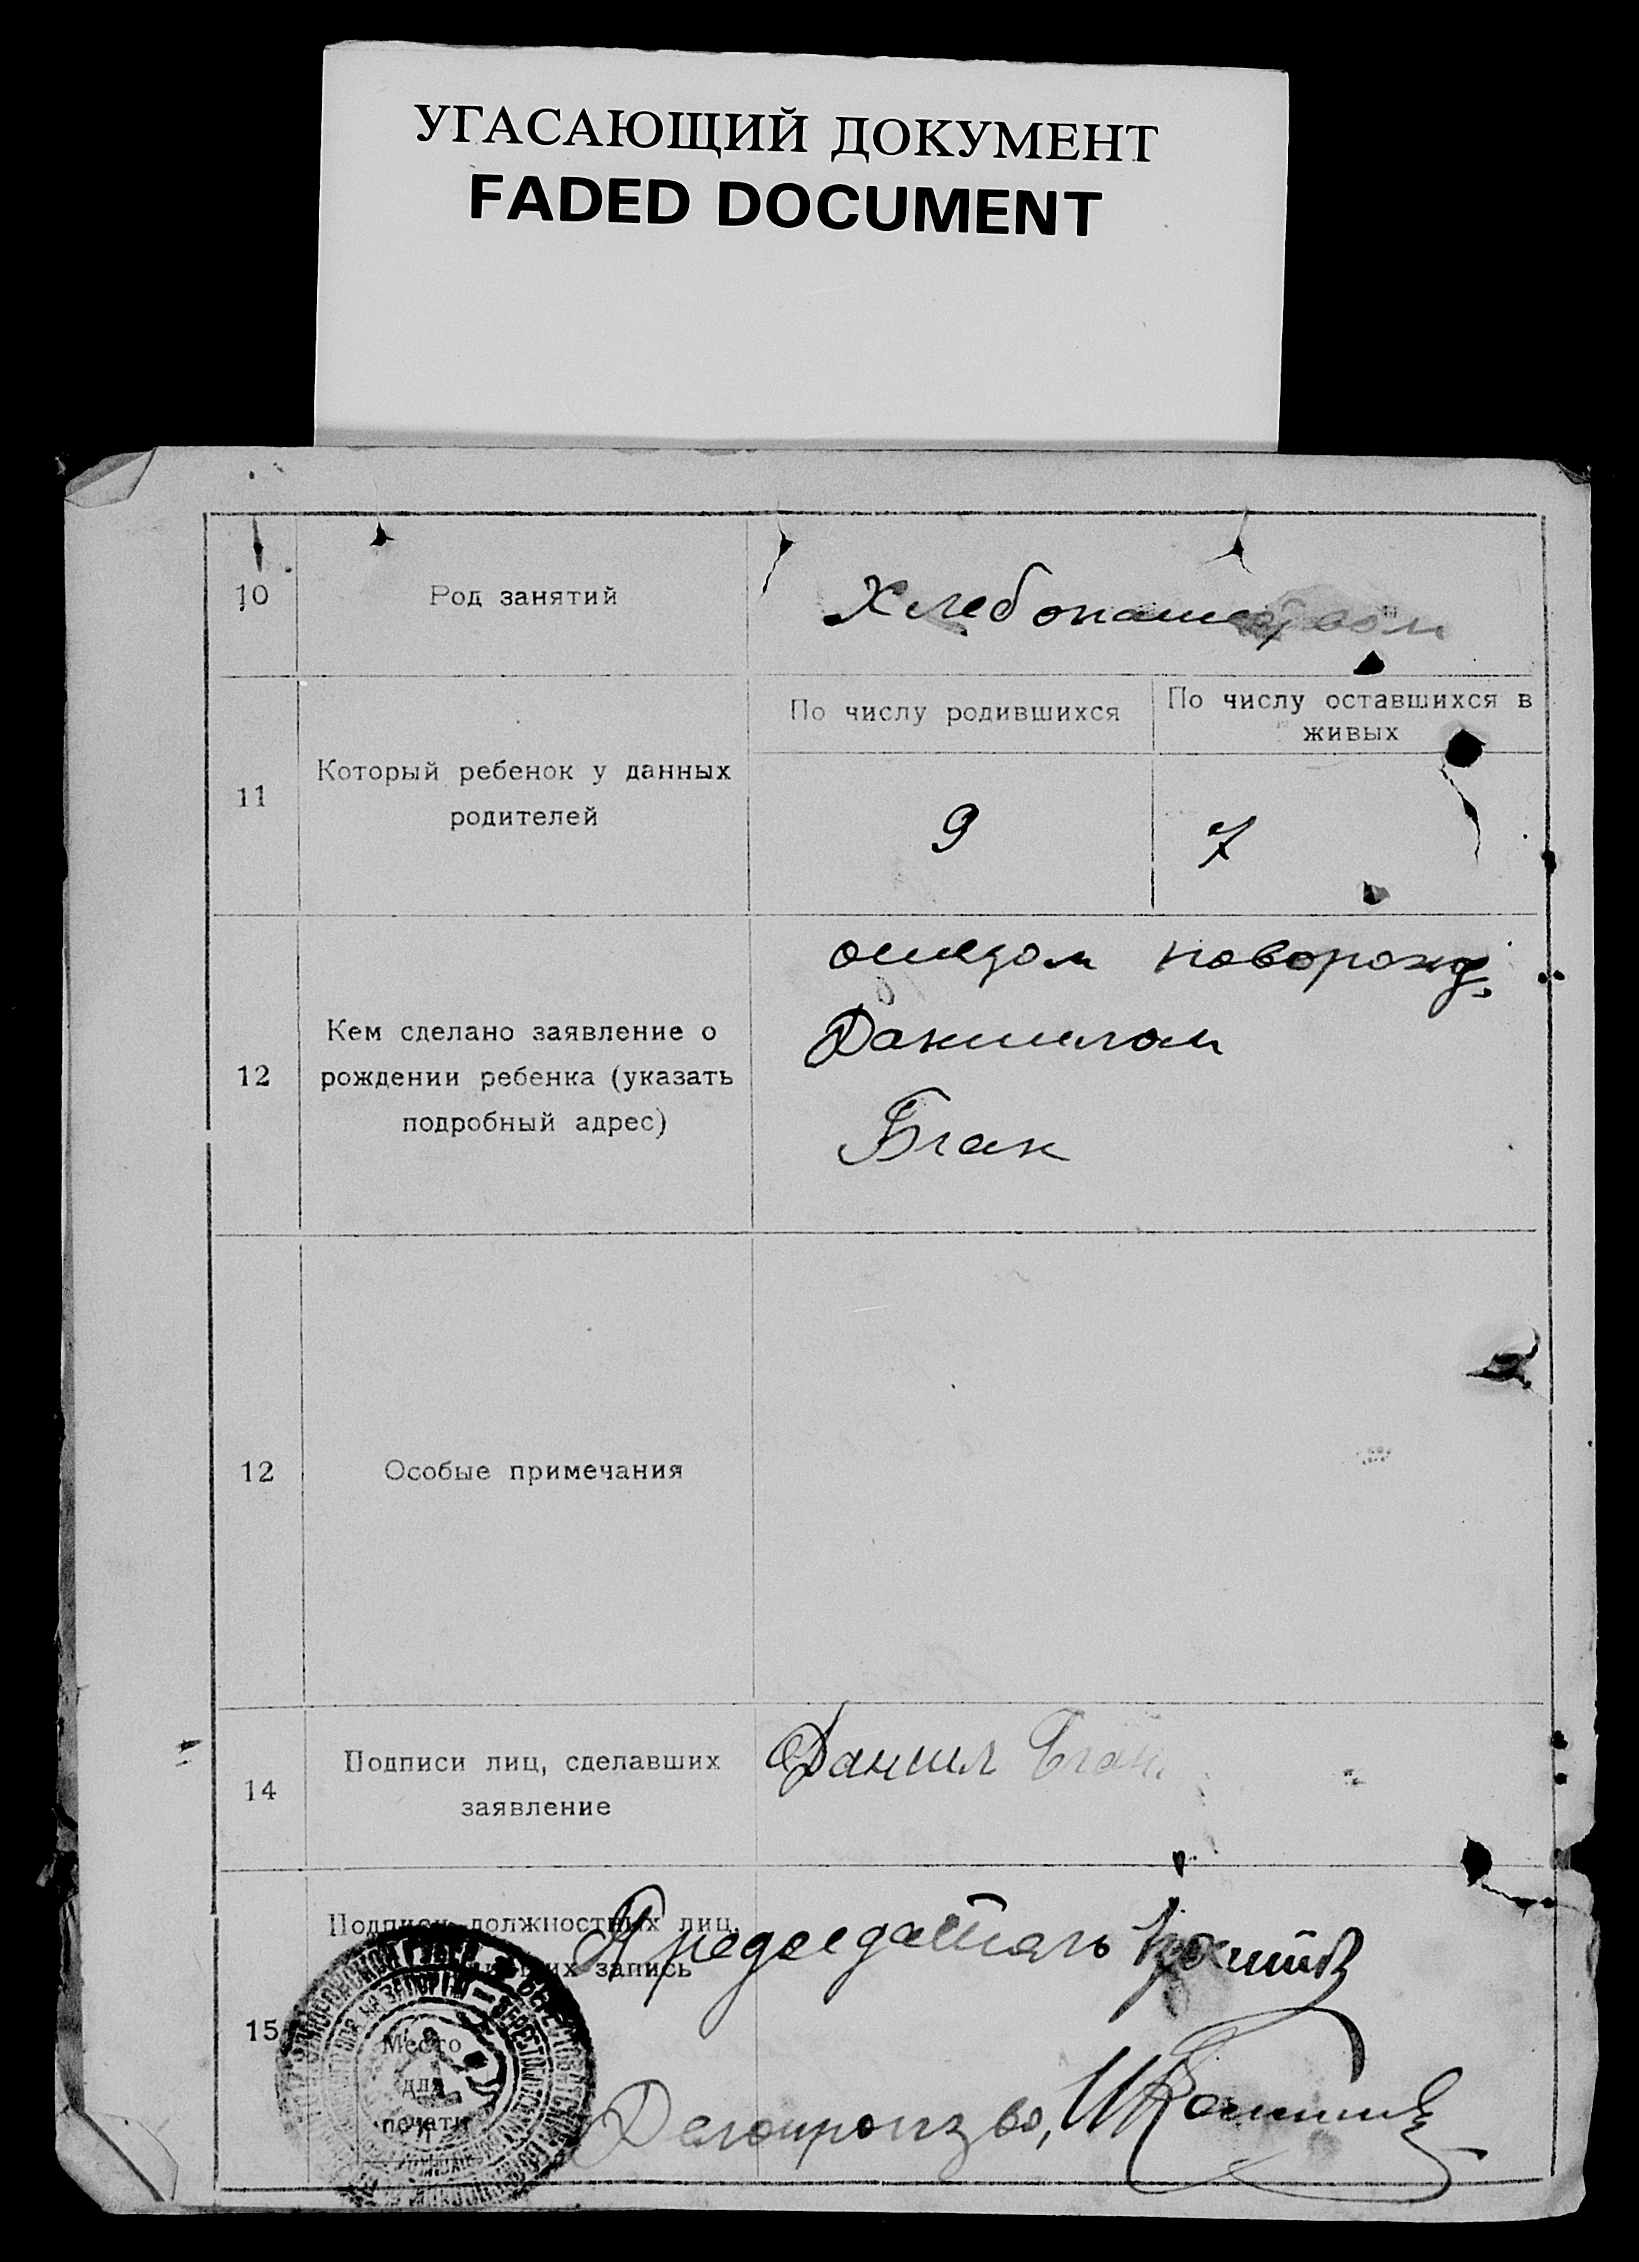 УГАСАЮЩИЙ ДОКУМЕНТ
FADED DOCUMENT
10
Род занятий
Хлебопашеством
11
Который ребенок у данных
родителей
По числу родившихся
По числу оставшихся в
живых
9
7
12
Кем сделано заявление о
рождении ребенка (указать
подробный адрес)
отцом новорожд.
Даниилом
Бгак
12
Особые примечания
14
Подписи лиц, сделавших
заявление
Даниил Бгак
15
Подписи должностных лиц,
запись
Место
для
печати
Председатель
Делопроизво,